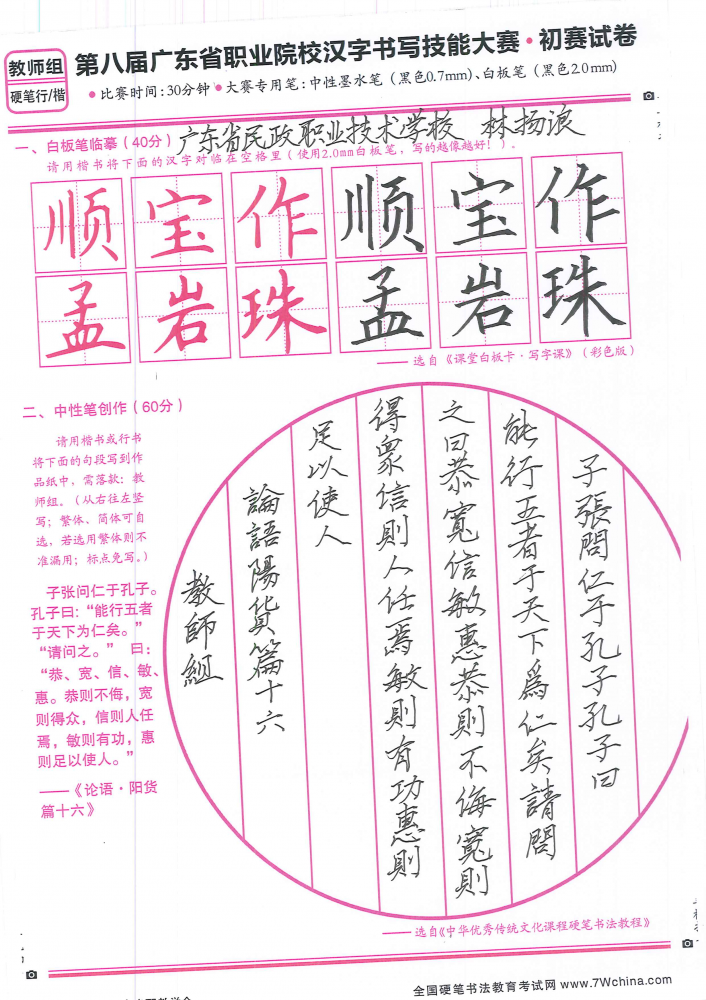 教师组
硬笔行/楷
第八届广东省职业院校汉字书写技能大赛·初赛试卷
•比赛时间:30分钟•大赛专用笔:中性墨水笔（黑色0.7mm)、白板笔（黑色2.0mm)
一、白板笔临摹（40分）
广东省民政职业技术学校 林扬浪
请用楷书将下面的汉字对临在空格里（使用2.0mm白板笔，写的越像越好！）。
顺宝作顺宝作
孟岩珠孟岩珠
——选自《课堂白板卡·写字课》（彩色版）
二、中性笔创作（60分）
请用楷书或行书
将下面的句段写到作
品纸中，需落款：教
师组。（从右往左竖
写；繁体、简体可自
选，若选用繁体则不
准漏用；标点免写。）
子张问仁于孔子。
孔子曰：“能行五者
于天下为仁矣。”
“请问之。” 曰：
“恭、宽、信、敏、
惠。恭则不侮，宽
则得众，信则人任
焉，敏则有功，惠
则足以使人。”
——《论语·阳货
篇十六》
子張問仁于孔子孔子曰
能行五者于天下爲仁矣請問
之曰恭寬信敏惠恭則不侮寬則
得衆信則人任焉敏則有功惠則
足以使人
論語陽貨篇十六
教師組
——选自《中华优秀传统文化课程硬笔书法教程》
全国硬笔书法教育考试网 www.7Wchina.com